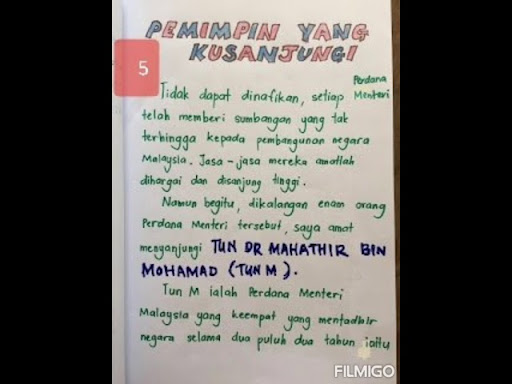 PEMIMPIN YANG
KUSANJUNGI
5
Tidak dapat dinafikan, setiap Perdana Menteri
telah memberi sumbangan yang tak
terhingga kepada pembangunan negara
Malaysia. Jasa-jasa mereka amatlah
dihargai dan disanjung tinggi.
Namun begitu, dikalangan enam orang
Perdana Menteri tersebut, saya amat
menyanjungi TUN DR MAHATHIR BIN
MOHAMAD (TUN M).
Tun M ialah Perdana Menteri
Malaysia yang keempat yang mentadbir
negara selama dua puluh dua tahun iaitu
FILMIGO